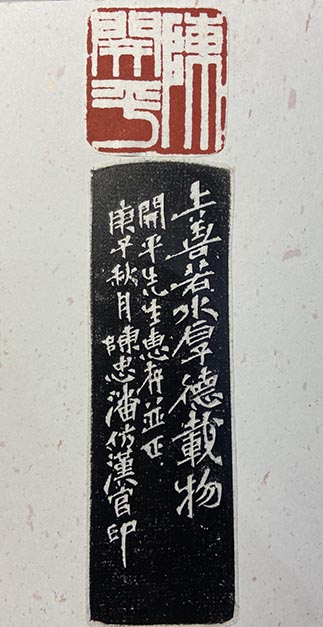 陳
開平
上善若水厚德載物
開平先生惠存並正
庚子秋月陳忠潘仿漢官印